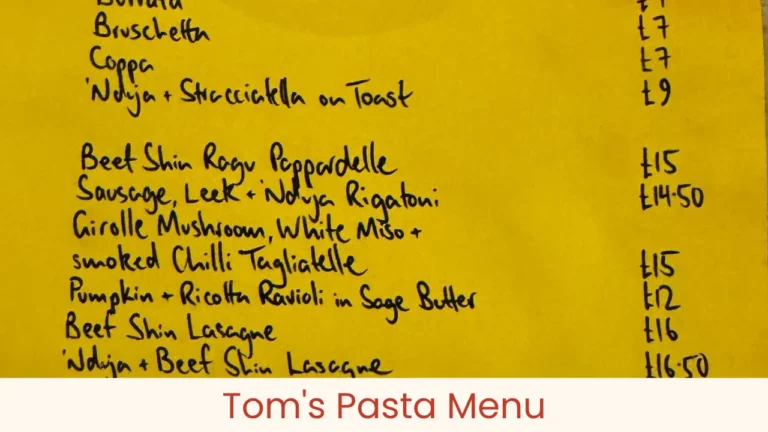 Burrata
Bruschetta £7
Coppa £7
'Nduja + Stracciatella on Toast £9
Beef Shin Ragu Pappardelle £15
Sausage, Leek + 'Nduja Rigatoni £14.50
Girolle Mushroom, White Miso +
smoked Chilli Tagliatelle £15
Pumpkin + Ricotta Ravioli in Sage Butter £12
Beef Shin Lasagne £16
'Nduja + Beef Shin Lasagne £16.50
Tom's Pasta Menu